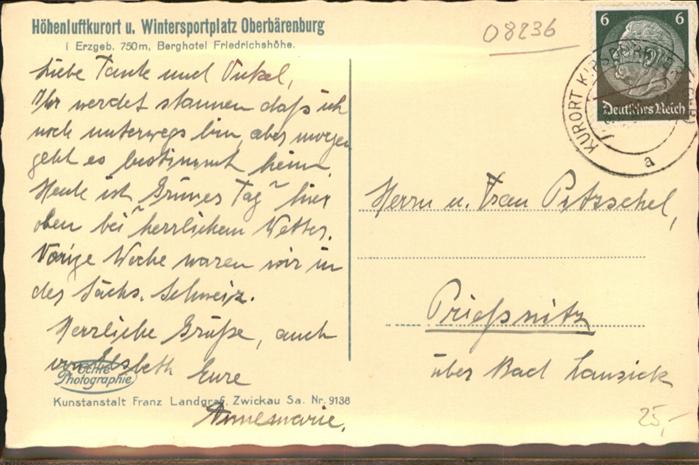 Höhenluftkurort u. Wintersportplatz Oberbärenburg
i Erzgeb. 750m, Berghotel Friedrichshöhe.
08236
6 6
Deutsches Reich
KURORT KIPSDORF
a
Liebe Tante und Onkel,
Ihr werdet staunen daß ich
noch unterwegs bin, aber morgen
geht es bestimmt heim.
Heute ist "Grünes Tag" hier
oben bei herrlichem Wetter.
Vorige Woche waren wir in
der Sächs. Schweiz.
Herzliche Grüße, auch
von Elsbeth Eure
Annemarie.
Echte
Photographie
Kunstanstalt Franz Landgraf, Zwickau Sa. Nr. 9138
Herrn u. Frau Petzschel,
Prießnitz
über Bad Lausick
25,-